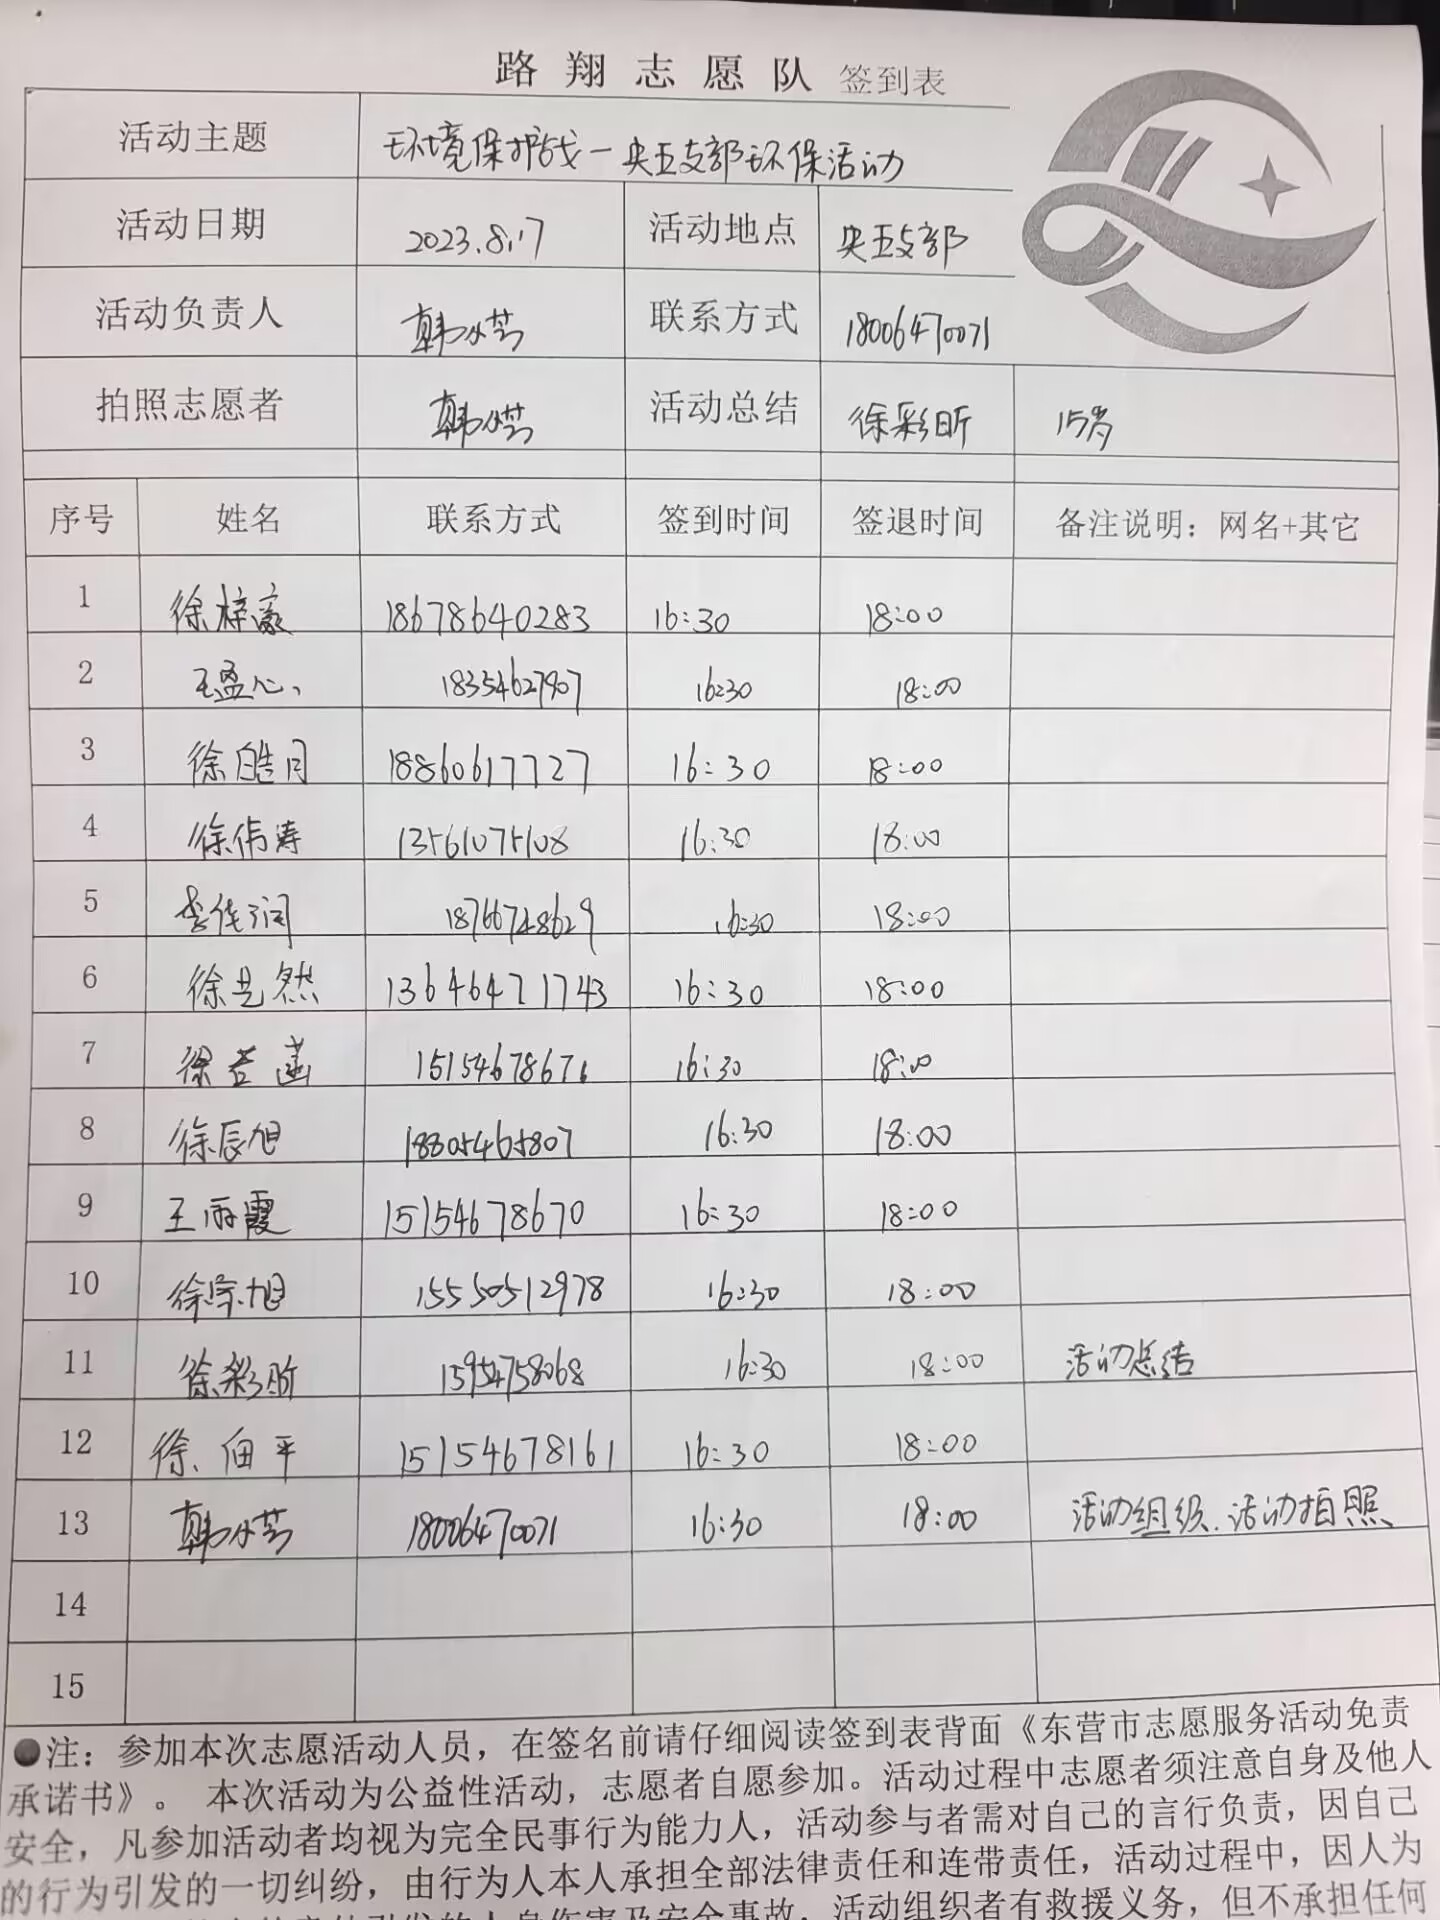 路翔志愿队 签到表
活动主题 环境保护战一央五支部环保活动
活动日期 2023.8.17 活动地点 央五支部
活动负责人 韩小芸 联系方式 18006470071
拍照志愿者 韩小芸 活动总结 徐彩昕 15岁
序号 姓名 联系方式 签到时间 签退时间 备注说明：网名+其它
1 徐梓豪 18678640283 16:30 18:00
2 王盈心 18354627907 16:30 18:00
3 徐皓月 18860617727 16:30 18:00
4 徐伟涛 13561075108 16:30 18:00
5 李佳润 18766748629 16:30 18:00
6 徐是然 13646471743 16:30 18:00
7 徐若菡 15154678671 16:30 18:00
8 徐辰旭 18805465807 16:30 18:00
9 王雨霞 15154678670 16:30 18:00
10 徐宗旭 15550512978 16:30 18:00
11 徐彩昕 15954758068 16:30 18:00 活动总结
12 徐佃平 15154678161 16:30 18:00
13 韩小芸 18006470071 16:30 18:00 活动组织.活动拍照
14
15
●注：参加本次志愿活动人员，在签名前请仔细阅读签到表背面《东营市志愿服务活动免责
承诺书》。 本次活动为公益性活动，志愿者自愿参加。活动过程中志愿者须注意自身及他人
安全，凡参加活动者均视为完全民事行为能力人，活动参与者需对自己的言行负责，因自己
的行为引发的一切纠纷，由行为人本人承担全部法律责任和连带责任，活动过程中，因人为
引发的人身伤害及安全事故，活动组织者有救援义务，但不承担任何